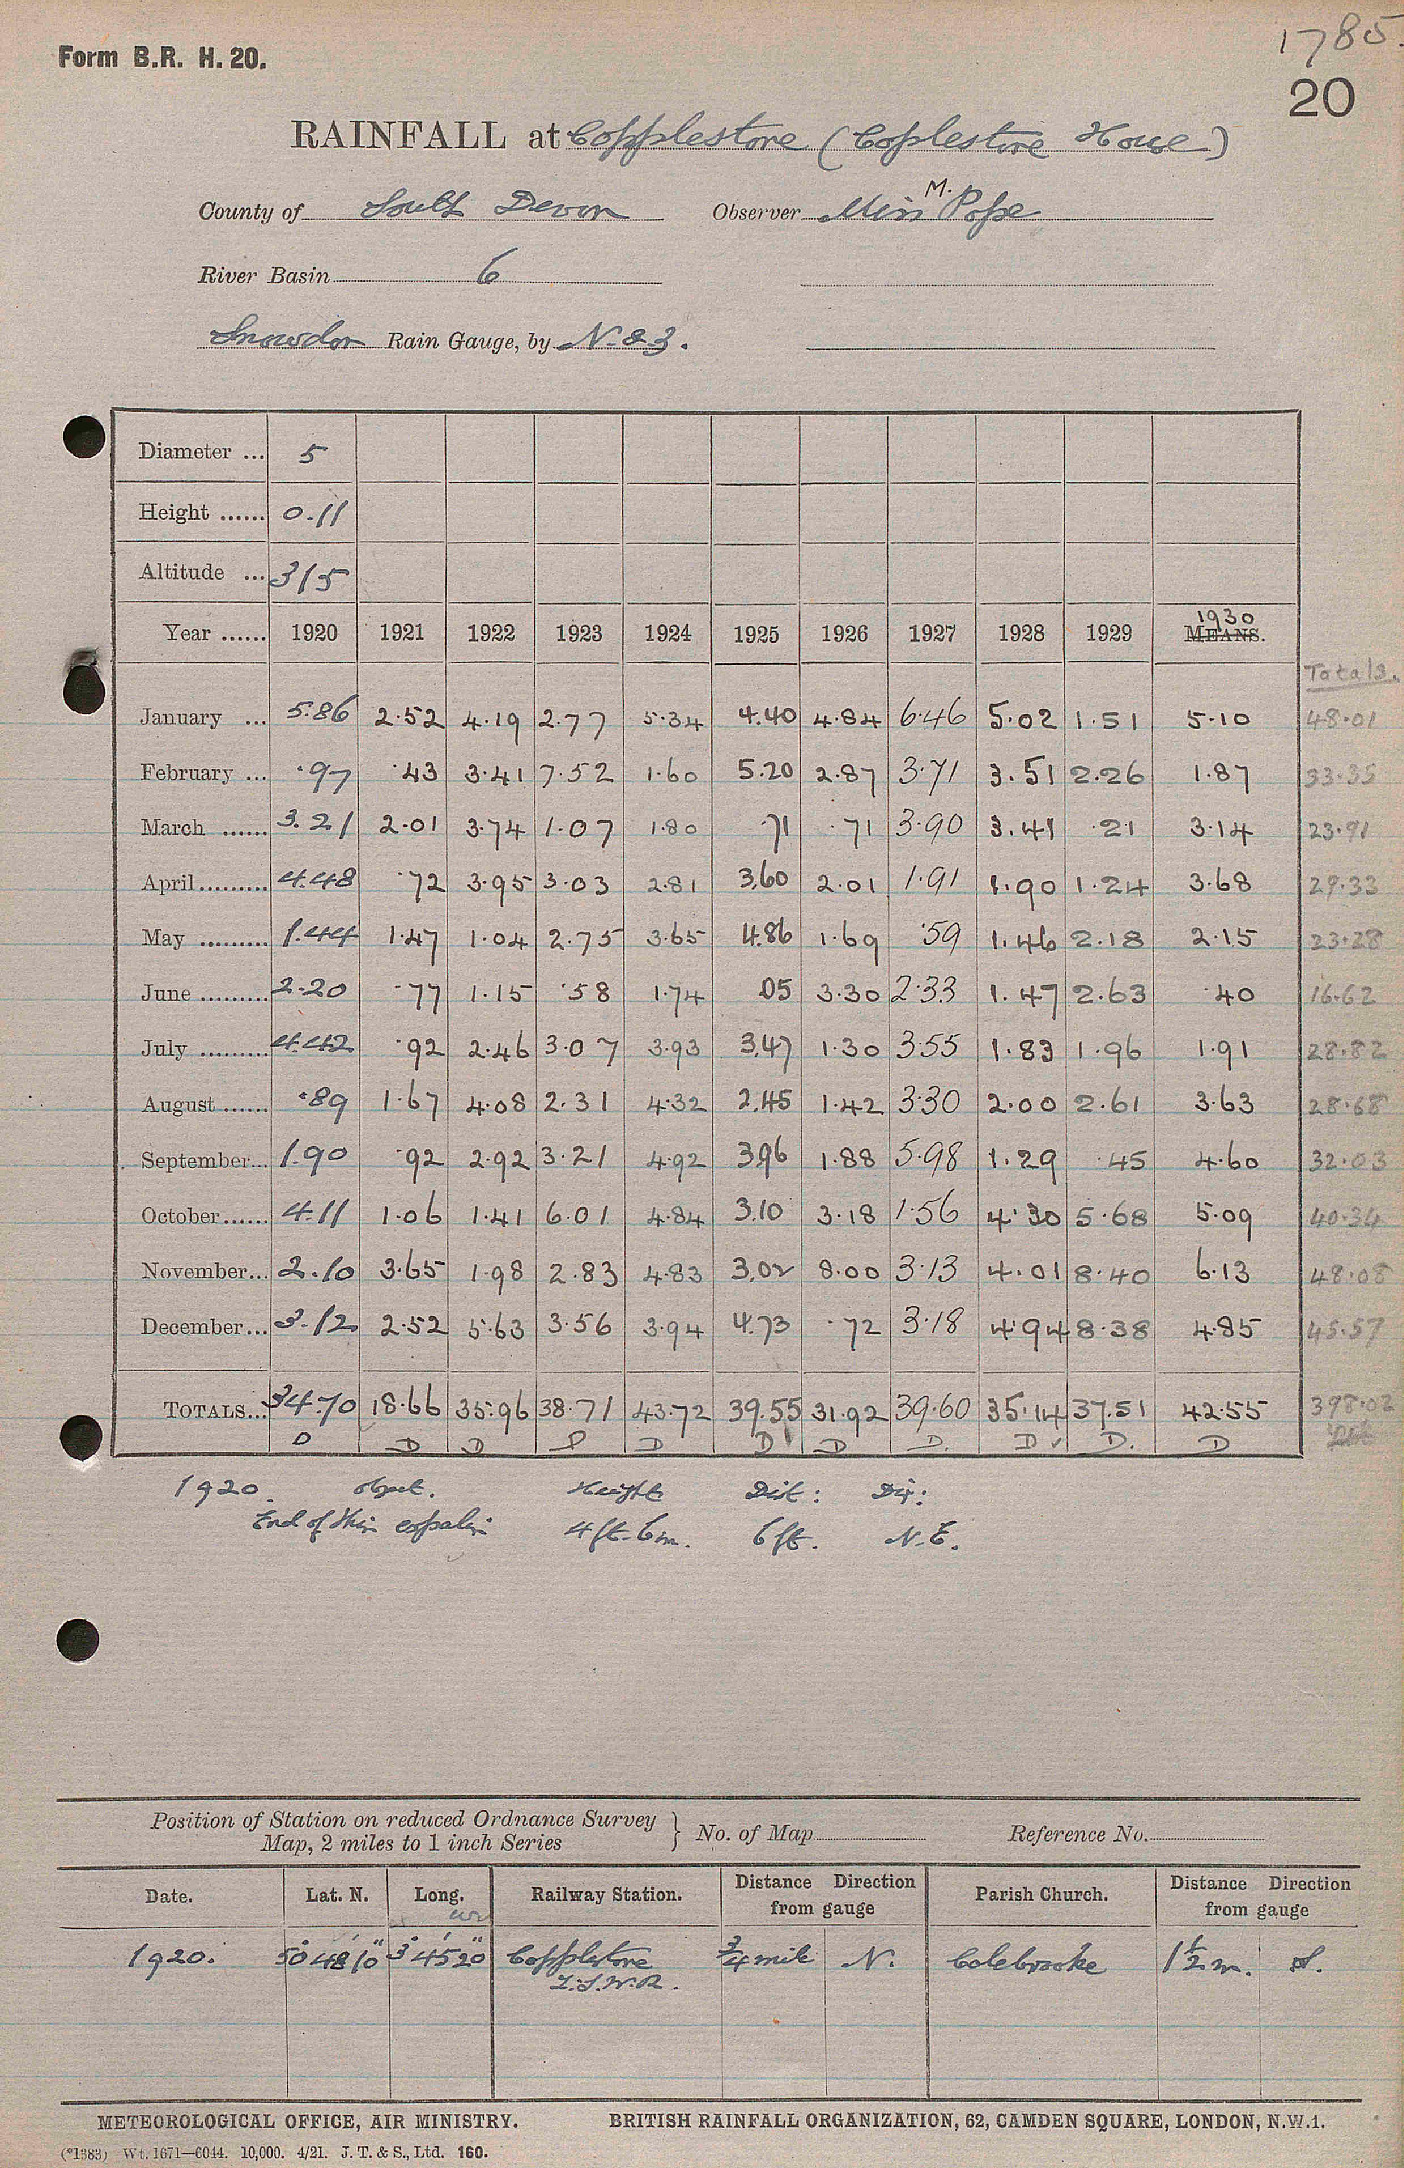 1785.
Form B.R. H. 20.
20
RAINFALL at Copplestone (Coplestone House)
County of South Devon Observer Miss M. Pope
River Basin 6
Snowdon Rain Gauge, by N. & Z.
Diameter ... 5
Height ...... 0.11
Altitude ... 315
Year ...... 1920 1921 1922 1923 1924 1925 1926 1927 1928 1929 1930 MEANS.
Totals.
January ... 5.86 2.52 4.19 2.77 5.34 4.40 4.84 6.46 5.02 1.51 5.10 48.01
February ... .97 .43 3.41 7.52 1.60 5.20 2.87 3.71 3.51 2.26 1.87 33.35
March ...... 3.21 2.01 3.74 1.07 1.80 .71 .71 3.90 3.41 .21 3.14 23.91
April ......... 4.48 .72 3.95 3.03 2.81 3.60 2.01 1.91 1.90 1.24 3.68 29.33
May ......... 1.44 1.47 1.04 2.75 3.65 4.86 1.69 .59 1.46 2.18 2.15 23.28
June ......... 2.20 .77 1.15 .58 1.74 .05 3.30 2.33 1.47 2.63 .40 16.62
July ......... 4.42 .92 2.46 3.07 3.93 3.47 1.30 3.55 1.83 1.96 1.91 28.82
August ...... .89 1.67 4.08 2.31 4.32 2.45 1.42 3.30 2.00 2.61 3.63 28.68
September... 1.90 .92 2.92 3.21 4.92 3.96 1.88 5.98 1.29 .45 4.60 32.03
October...... 4.11 1.06 1.41 6.01 4.84 3.10 3.18 1.56 4.30 5.68 5.09 40.34
November... 2.10 3.65 1.98 2.83 4.83 3.02 8.00 3.13 4.01 8.40 6.13 48.08
December... 3.12 2.52 5.63 3.56 3.94 4.73 .72 3.18 4.94 8.38 4.85 45.57
TOTALS... 34.70 18.66 35.96 38.71 43.72 39.55 31.92 39.60 35.14 37.51 42.55 398.02
D D D D D D D D. D D. D
1920. Object. Height Dist: Dir:
End of thin espalier 4 ft. 6 in. 6 ft. N.E.
Position of Station on reduced Ordnance Survey
Map, 2 miles to 1 inch Series } No. of Map Reference No.
Date. Lat. N. Long. Railway Station. Distance Direction from gauge Parish Church. Distance Direction from gauge
1920. 50° 48' 10" 3° 45' 20" Copplestone ¾ mile N. Colebrooke 1½ m. S.
L.S.W.R.
METEOROLOGICAL OFFICE, AIR MINISTRY. BRITISH RAINFALL ORGANIZATION, 62, CAMDEN SQUARE, LONDON, N.W.1.
(*1383) Wt. 1671—6044. 10,000. 4/21. J. T. & S., Ltd. 160.